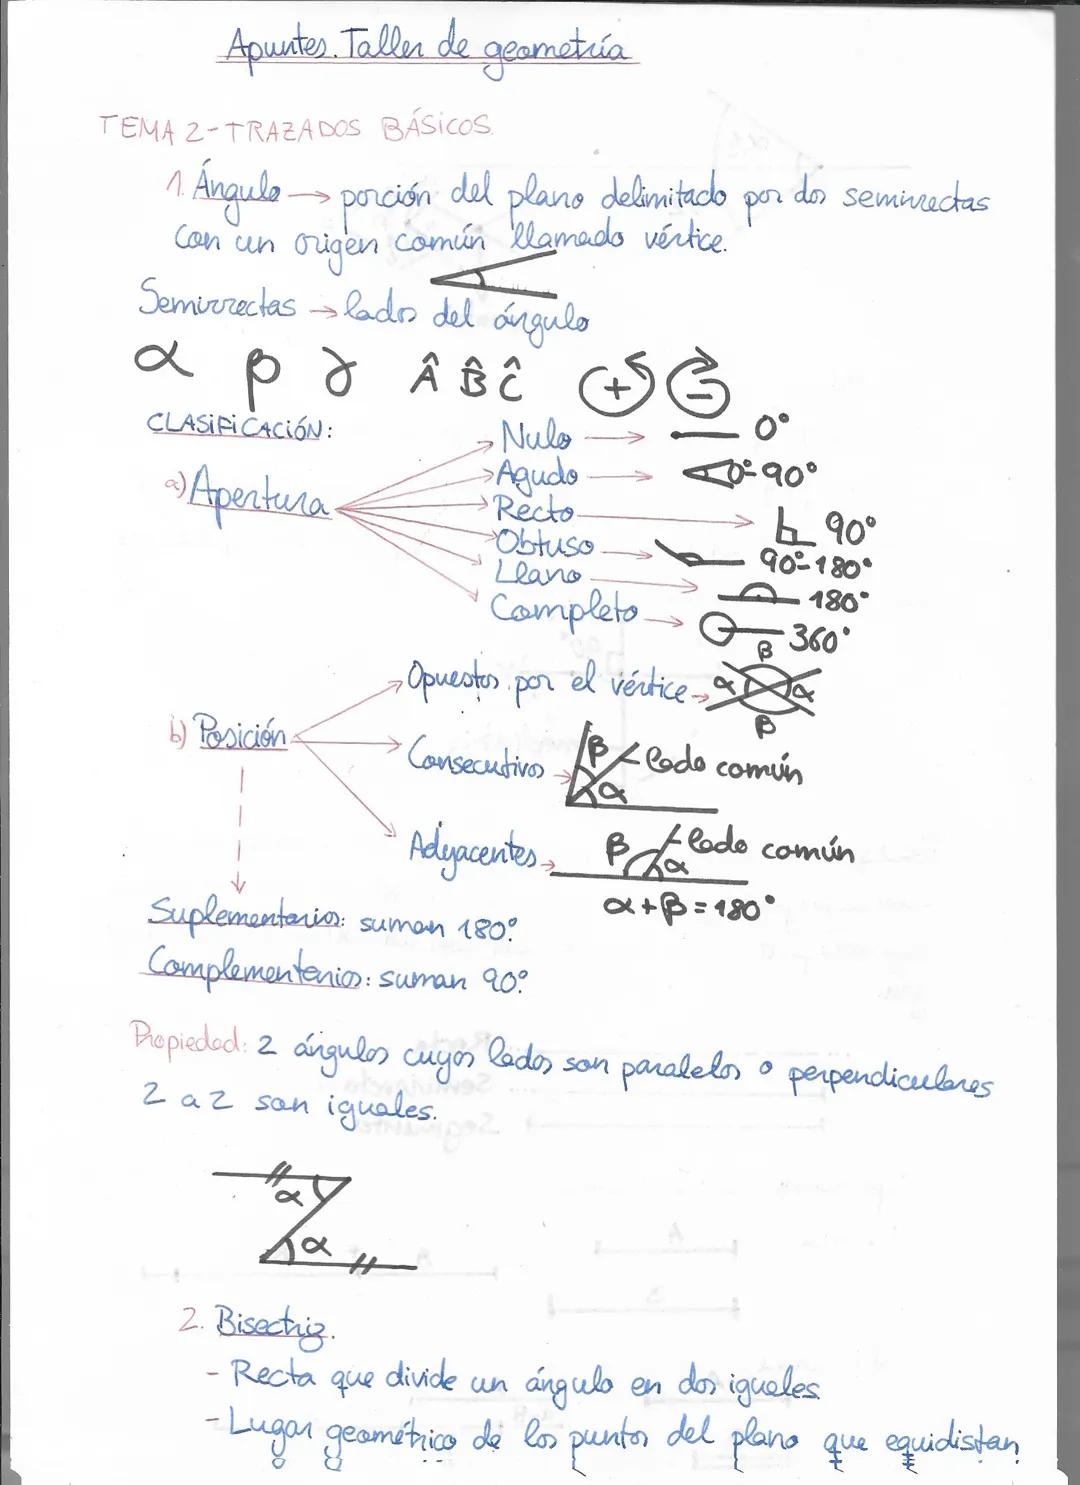 Apuntes. Taller de geometría
TEMA 2-TRAZADOS BÁSICOS.
1. Ángulo → porción del plano delimitado por dos semirrectas
con un origen común llamado vértice.
Semirrectas → lados del ángulo
α β γ Â B̂ Ĉ + -
CLASIFICACIÓN:
a) Apertura
Nulo → 0°
Agudo → 0°-90°
Recto → 90°
Obtuso → 90°-180°
Llano → 180°
Completo → 360°
b) Posición
Opuestos por el vértice → α β α β
Consecutivos → β α lado común
Adyacentes → β α lado común
α+β=180°
Suplementarios: suman 180°.
Complementarios: suman 90°.
Propiedad: 2 ángulos cuyos lados son paralelos o perpendiculares
2 a 2 son iguales.
α
α
2. Bisectriz.
- Recta que divide un ángulo en dos iguales
- Lugar geométrico de los puntos del plano que equidistan